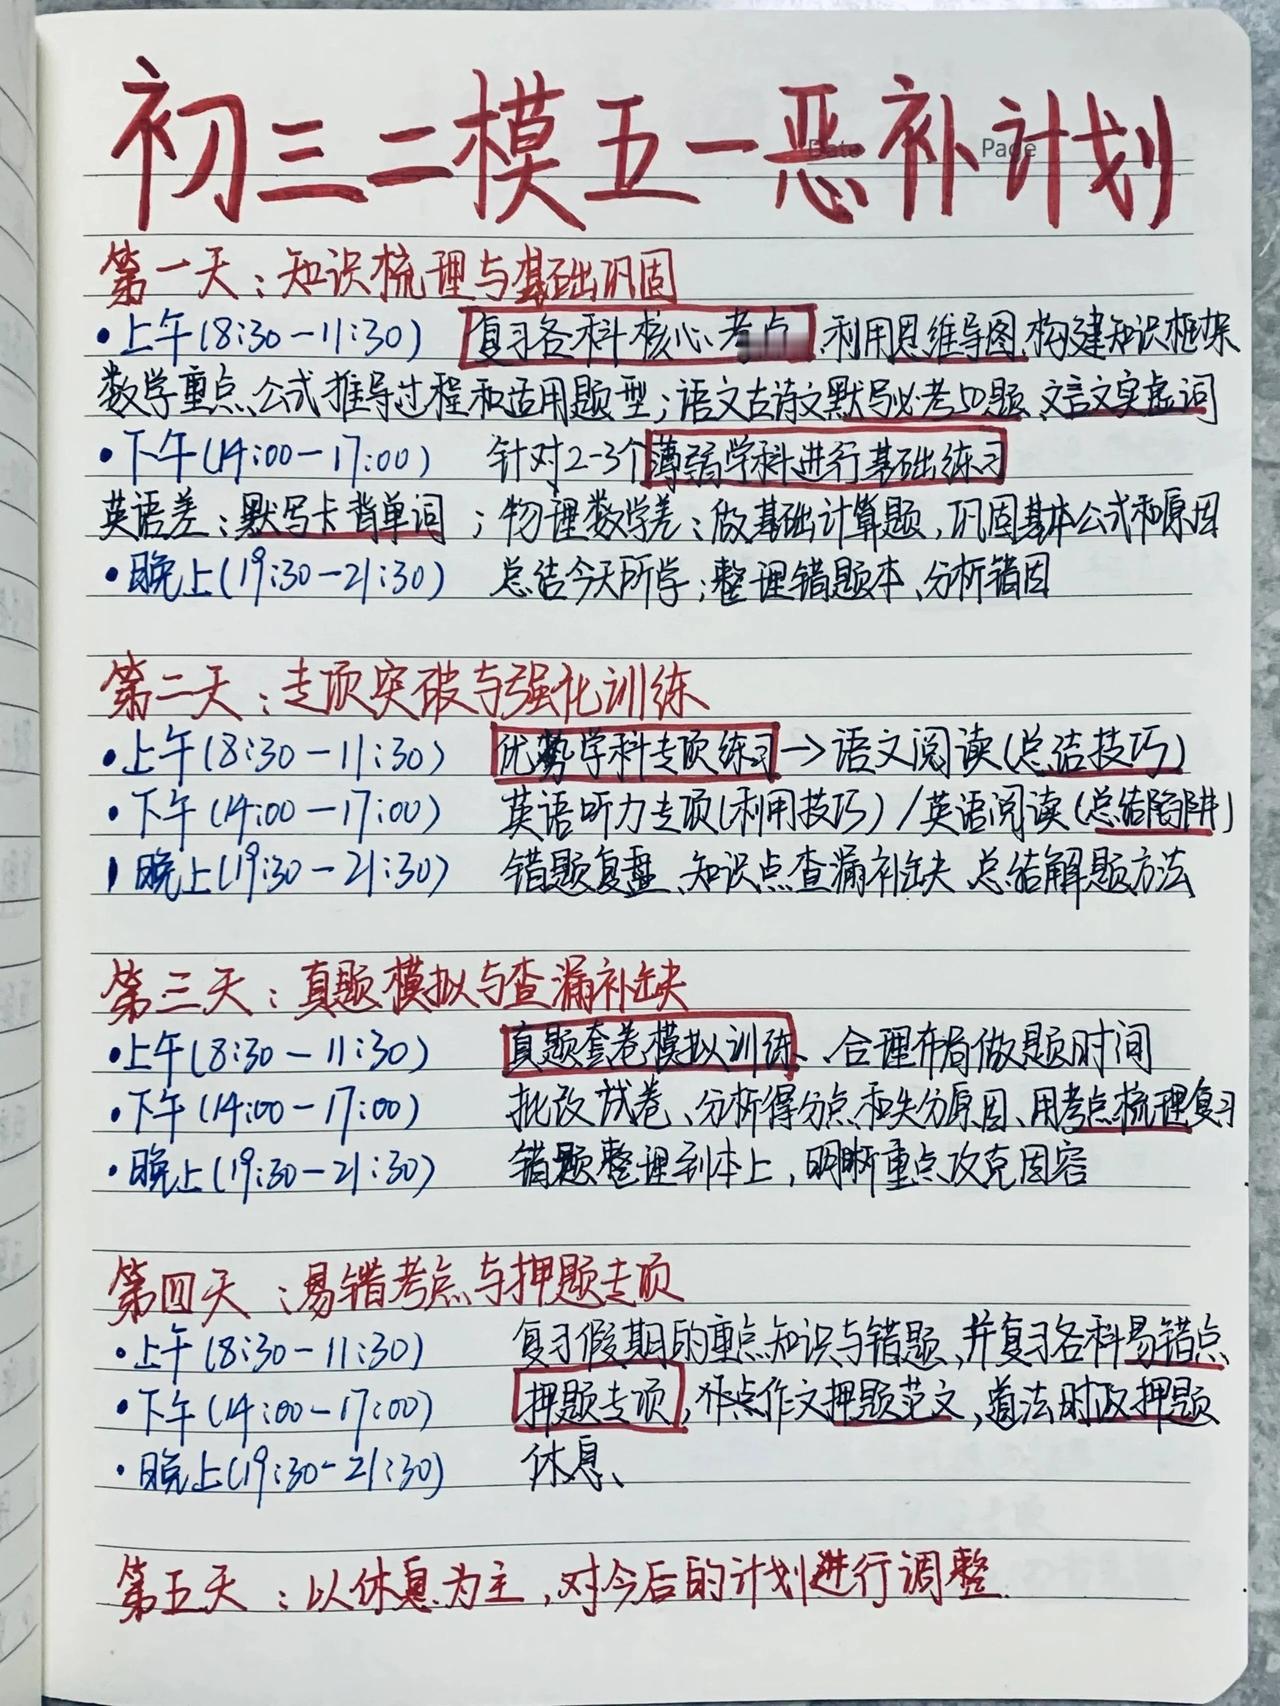 初三二模五一恶补计划
Date
Page
第一天：知识梳理与基础巩固
•上午(8:30-11:30) 复习各科核心考点、利用思维导图构建知识框架
数学重点公式推导过程和适用题型；语文古诗文默写必考50题、文言文实虚词
•下午(14:00-17:00) 针对2-3个薄弱学科进行基础练习
英语差：默写卡背单词；物理数学差：做基础计算题，巩固基本公式和原因
•晚上(19:30-21:30) 总结今天所学；整理错题本、分析错因
第二天：专项突破与强化训练
•上午(8:30-11:30) 优势学科专项练习→语文阅读(总结技巧)
•下午(14:00-17:00) 英语听力专项(利用技巧)/英语阅读(总结陷阱)
•晚上(19:30-21:30) 错题复盘、知识点查漏补缺 总结解题方法
第三天：真题模拟与查漏补缺
•上午(8:30-11:30) 真题套卷模拟训练、合理布局做题时间
•下午(14:00-17:00) 批改试卷、分析得分点和失分原因、用考点梳理复习
•晚上(19:30-21:30) 错题整理到本上，明晰重点攻克内容
第四天：易错考点与押题专项
•上午(8:30-11:30) 复习假期的重点知识与错题、并复习各科易错点
•下午(14:00-17:00) 押题专项，作文押题范文，道法时政押题
•晚上(19:30-21:30) 休息、
第五天：以休息为主，对今后的计划进行调整.